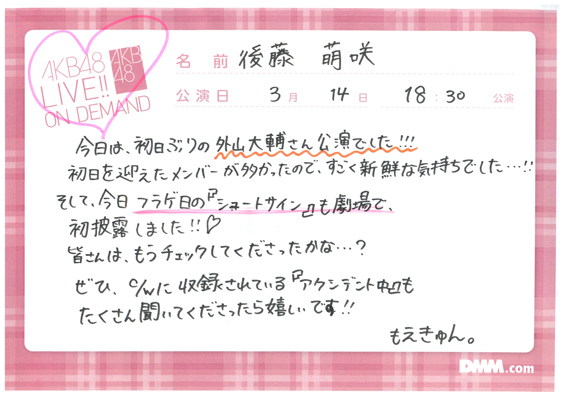 AKB48
LIVE!!
ON DEMAND
AKB
48
名前 後藤 萌咲
公演日 3月 14日 18:30 公演
今日は、初日ぶりの外山大輔さん公演でした!!!
初日を迎えたメンバーが多かったので、すごく新鮮な気持ちでした…!!
そして、今日フラゲ日の『シュートサイン』も劇場で、
初披露しました!!♡
皆さんは、もうチェックしてくださったかな…?
ぜひ、c/wに収録されている『アクシデント中』も
たくさん聞いてくださったら嬉しいです!!
もえきゅん。
DMM.com